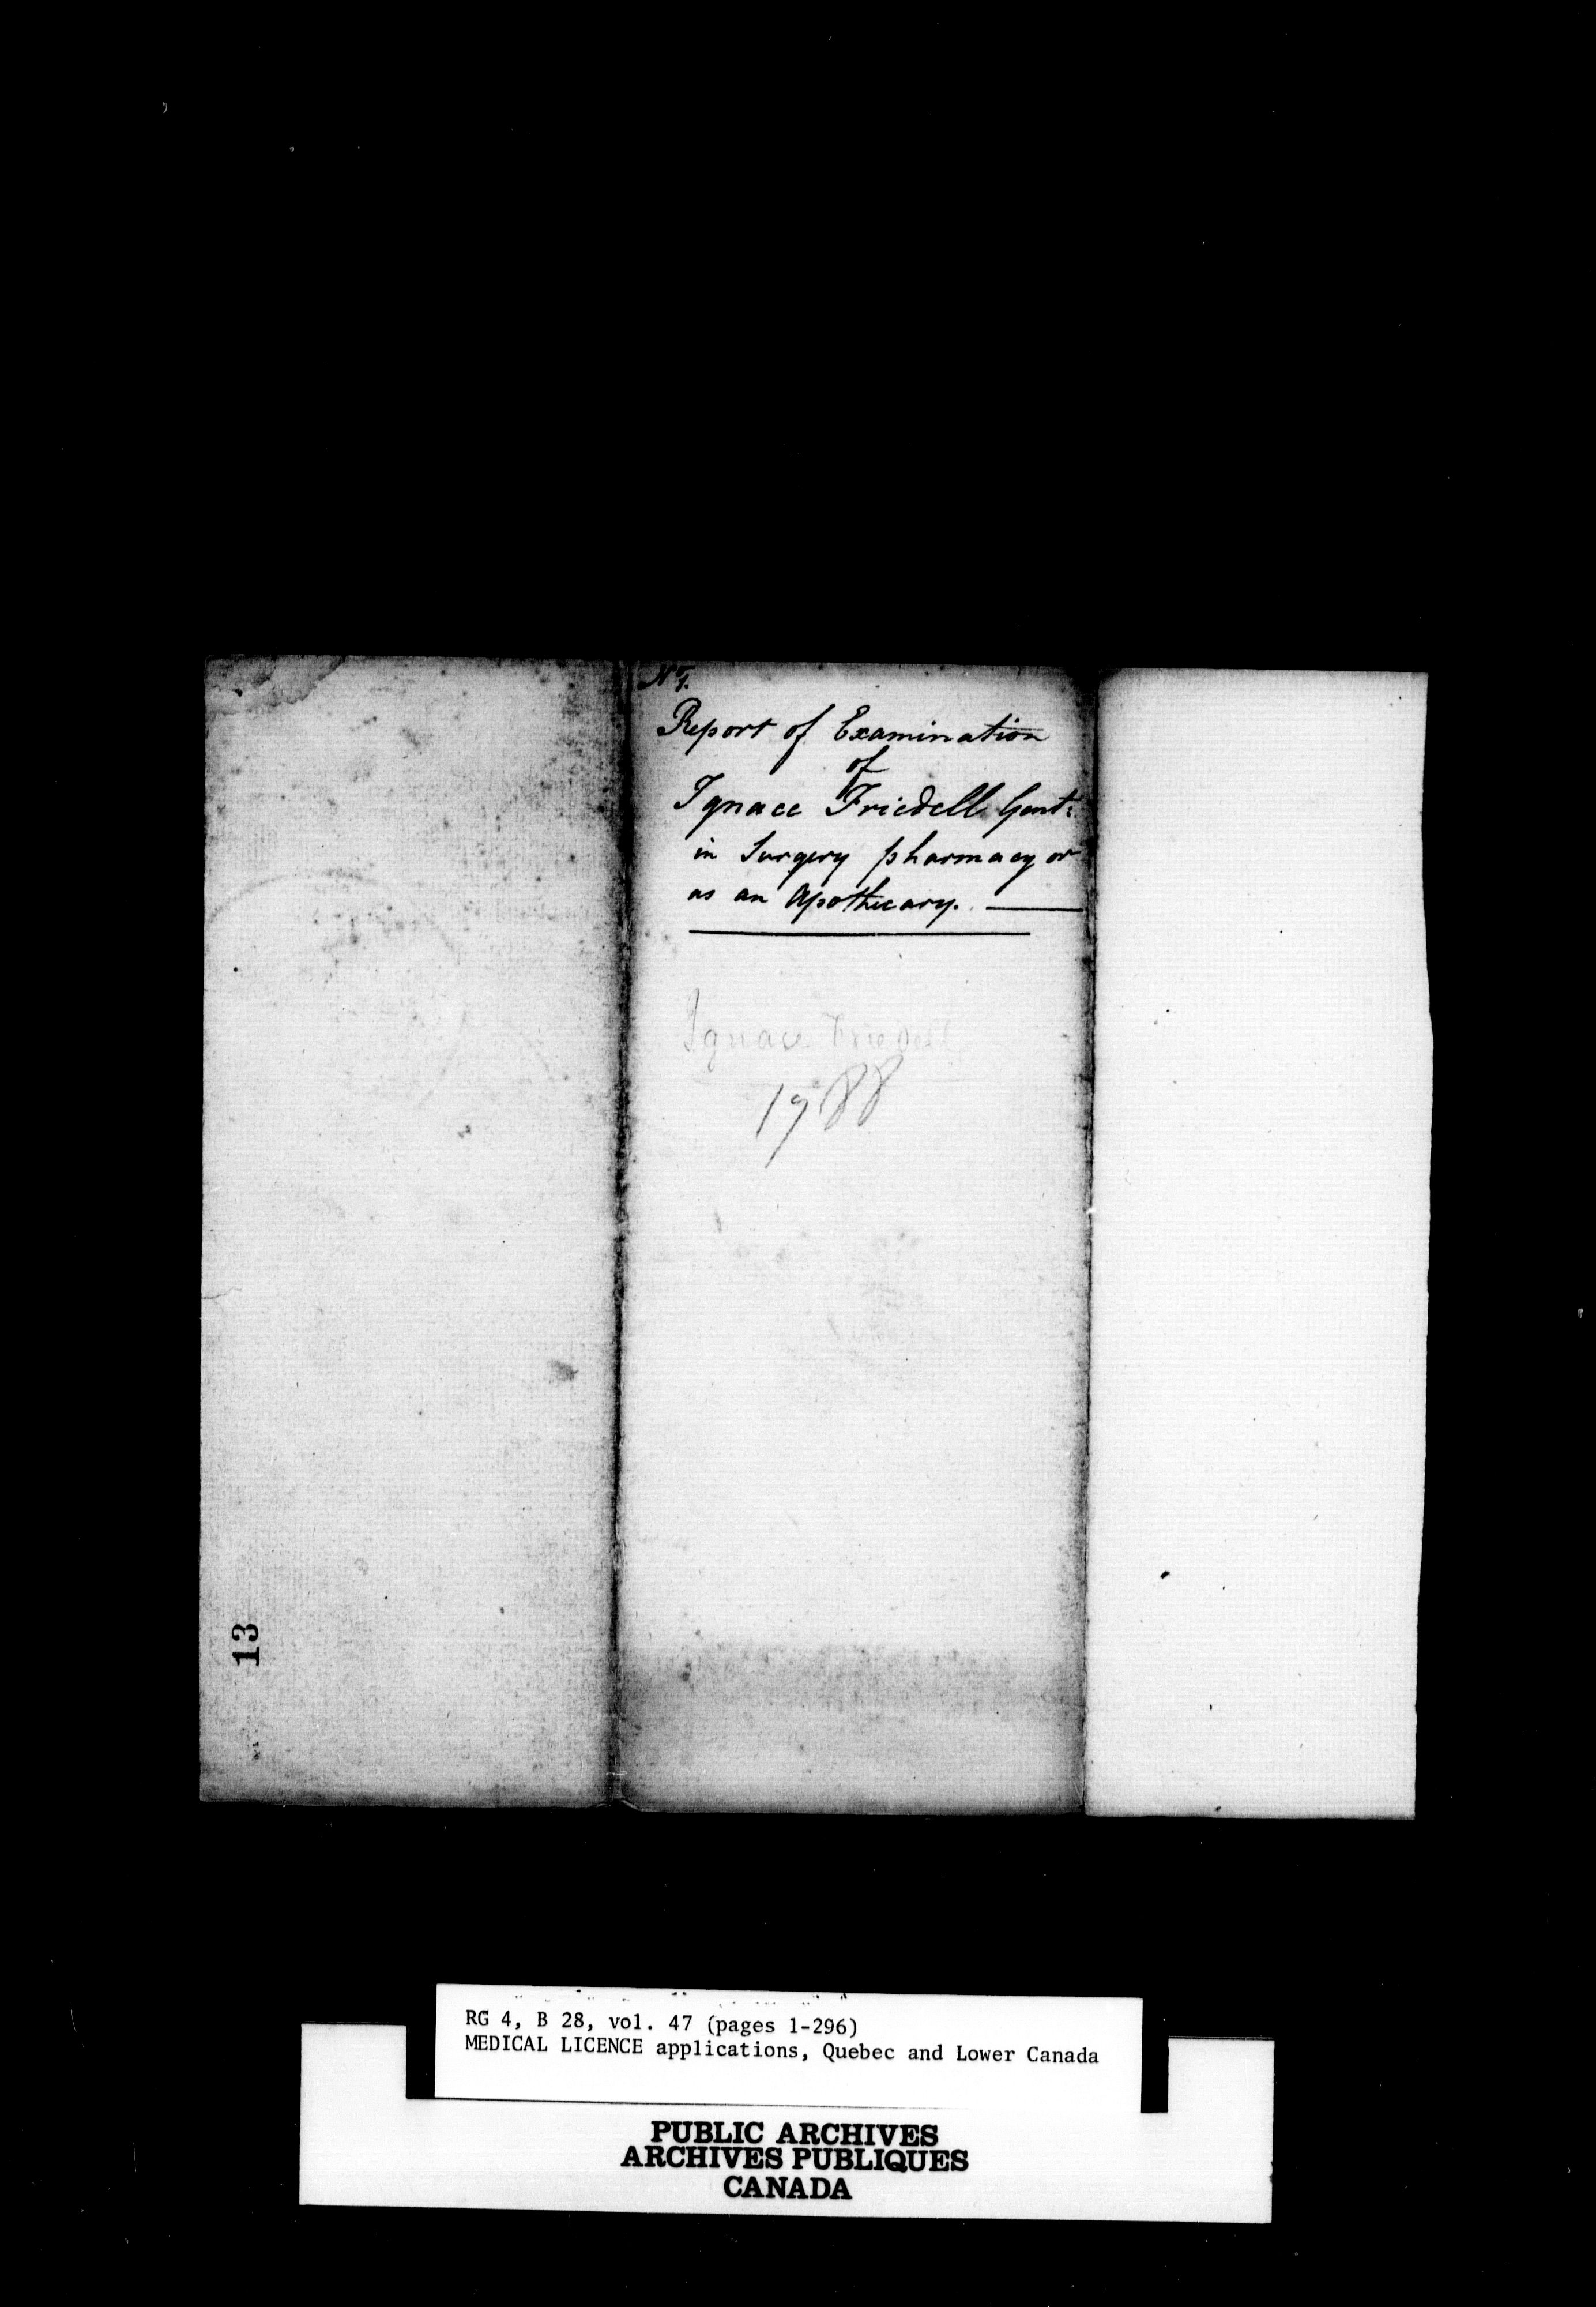 Report of Examination
of
Ignace Friedell Gent:
in Surgery pharmacy or
as an Apothecary.
Ignace Friedell
1788
13
RG 4, B 28, vol. 47 (pages 1-296)
MEDICAL LICENCE applications, Quebec and Lower Canada
PUBLIC ARCHIVES
ARCHIVES PUBLIQUES
CANADA